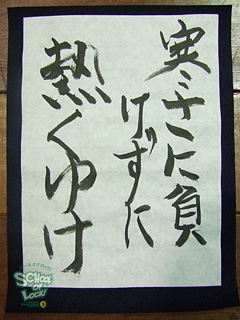 寒さに負
けずに
熱くゆけ
SCHOOL
OF
LOCK!